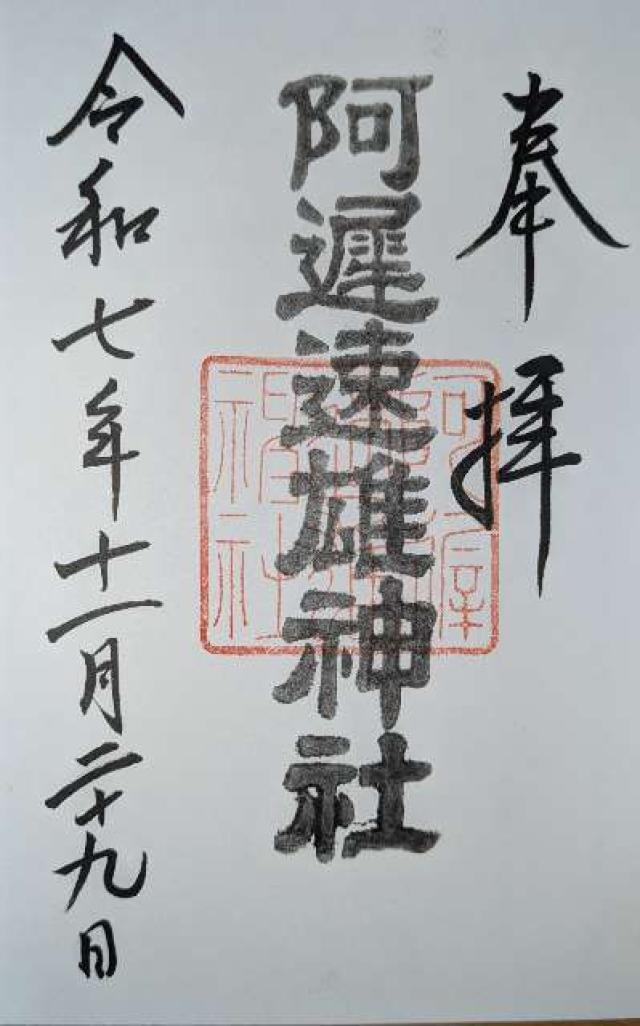 奉拝
阿遲速雄神社
令和七年十一月二十九日